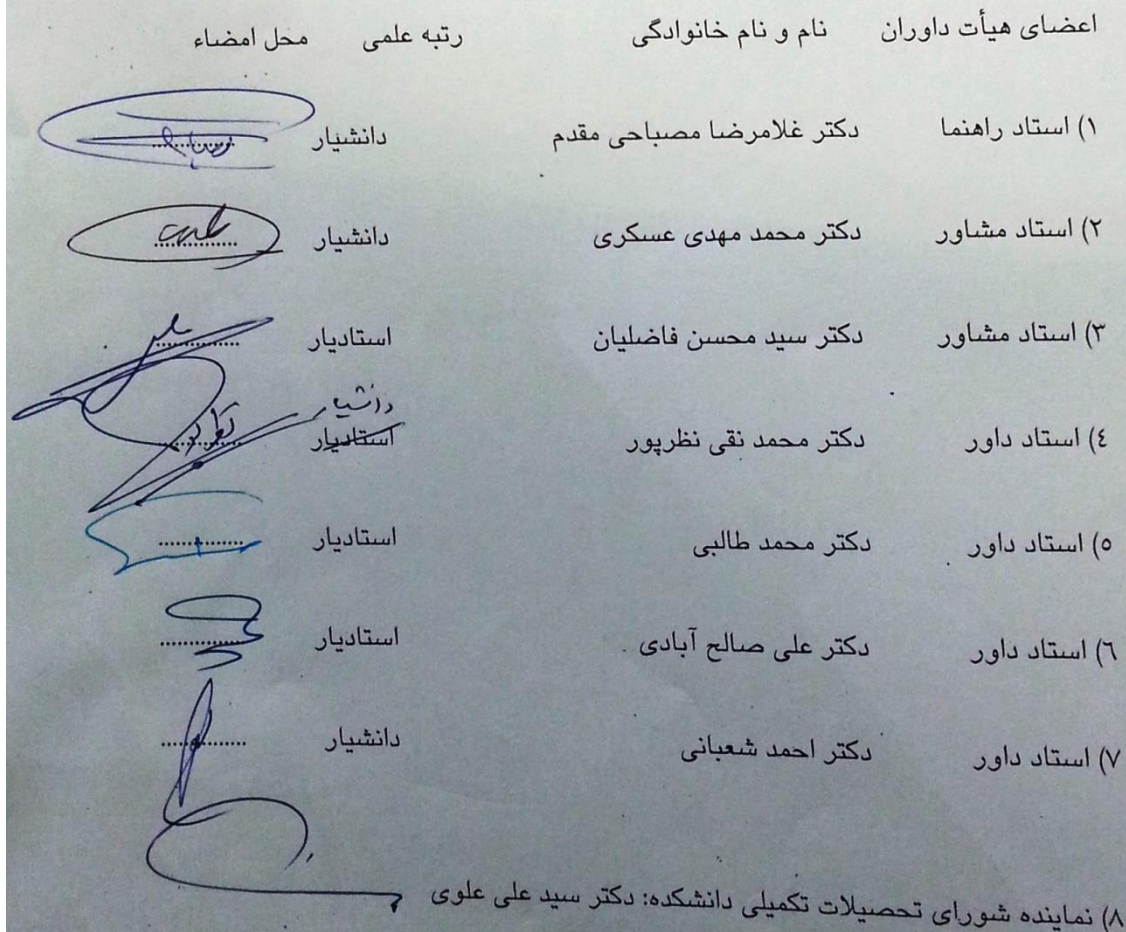 اعضای هیأت داوران نام و نام خانوادگی رتبه علمی محل امضاء
۱) استاد راهنما دکتر غلامرضا مصباحی مقدم دانشیار ..............
۲) استاد مشاور دکتر محمد مهدی عسکری دانشیار ..............
۳) استاد مشاور دکتر سید محسن فاضلیان استادیار ..............
دانشیار
٤) استاد داور دکتر محمد نقی نظرپور استادیار ..............
٥) استاد داور دکتر محمد طالبی استادیار ..............
٦) استاد داور دکتر علی صالح آبادی استادیار ..............
۷) استاد داور دکتر احمد شعبانی دانشیار ..............
۸) نماینده شورای تحصیلات تکمیلی دانشکده: دکتر سید علی علوی